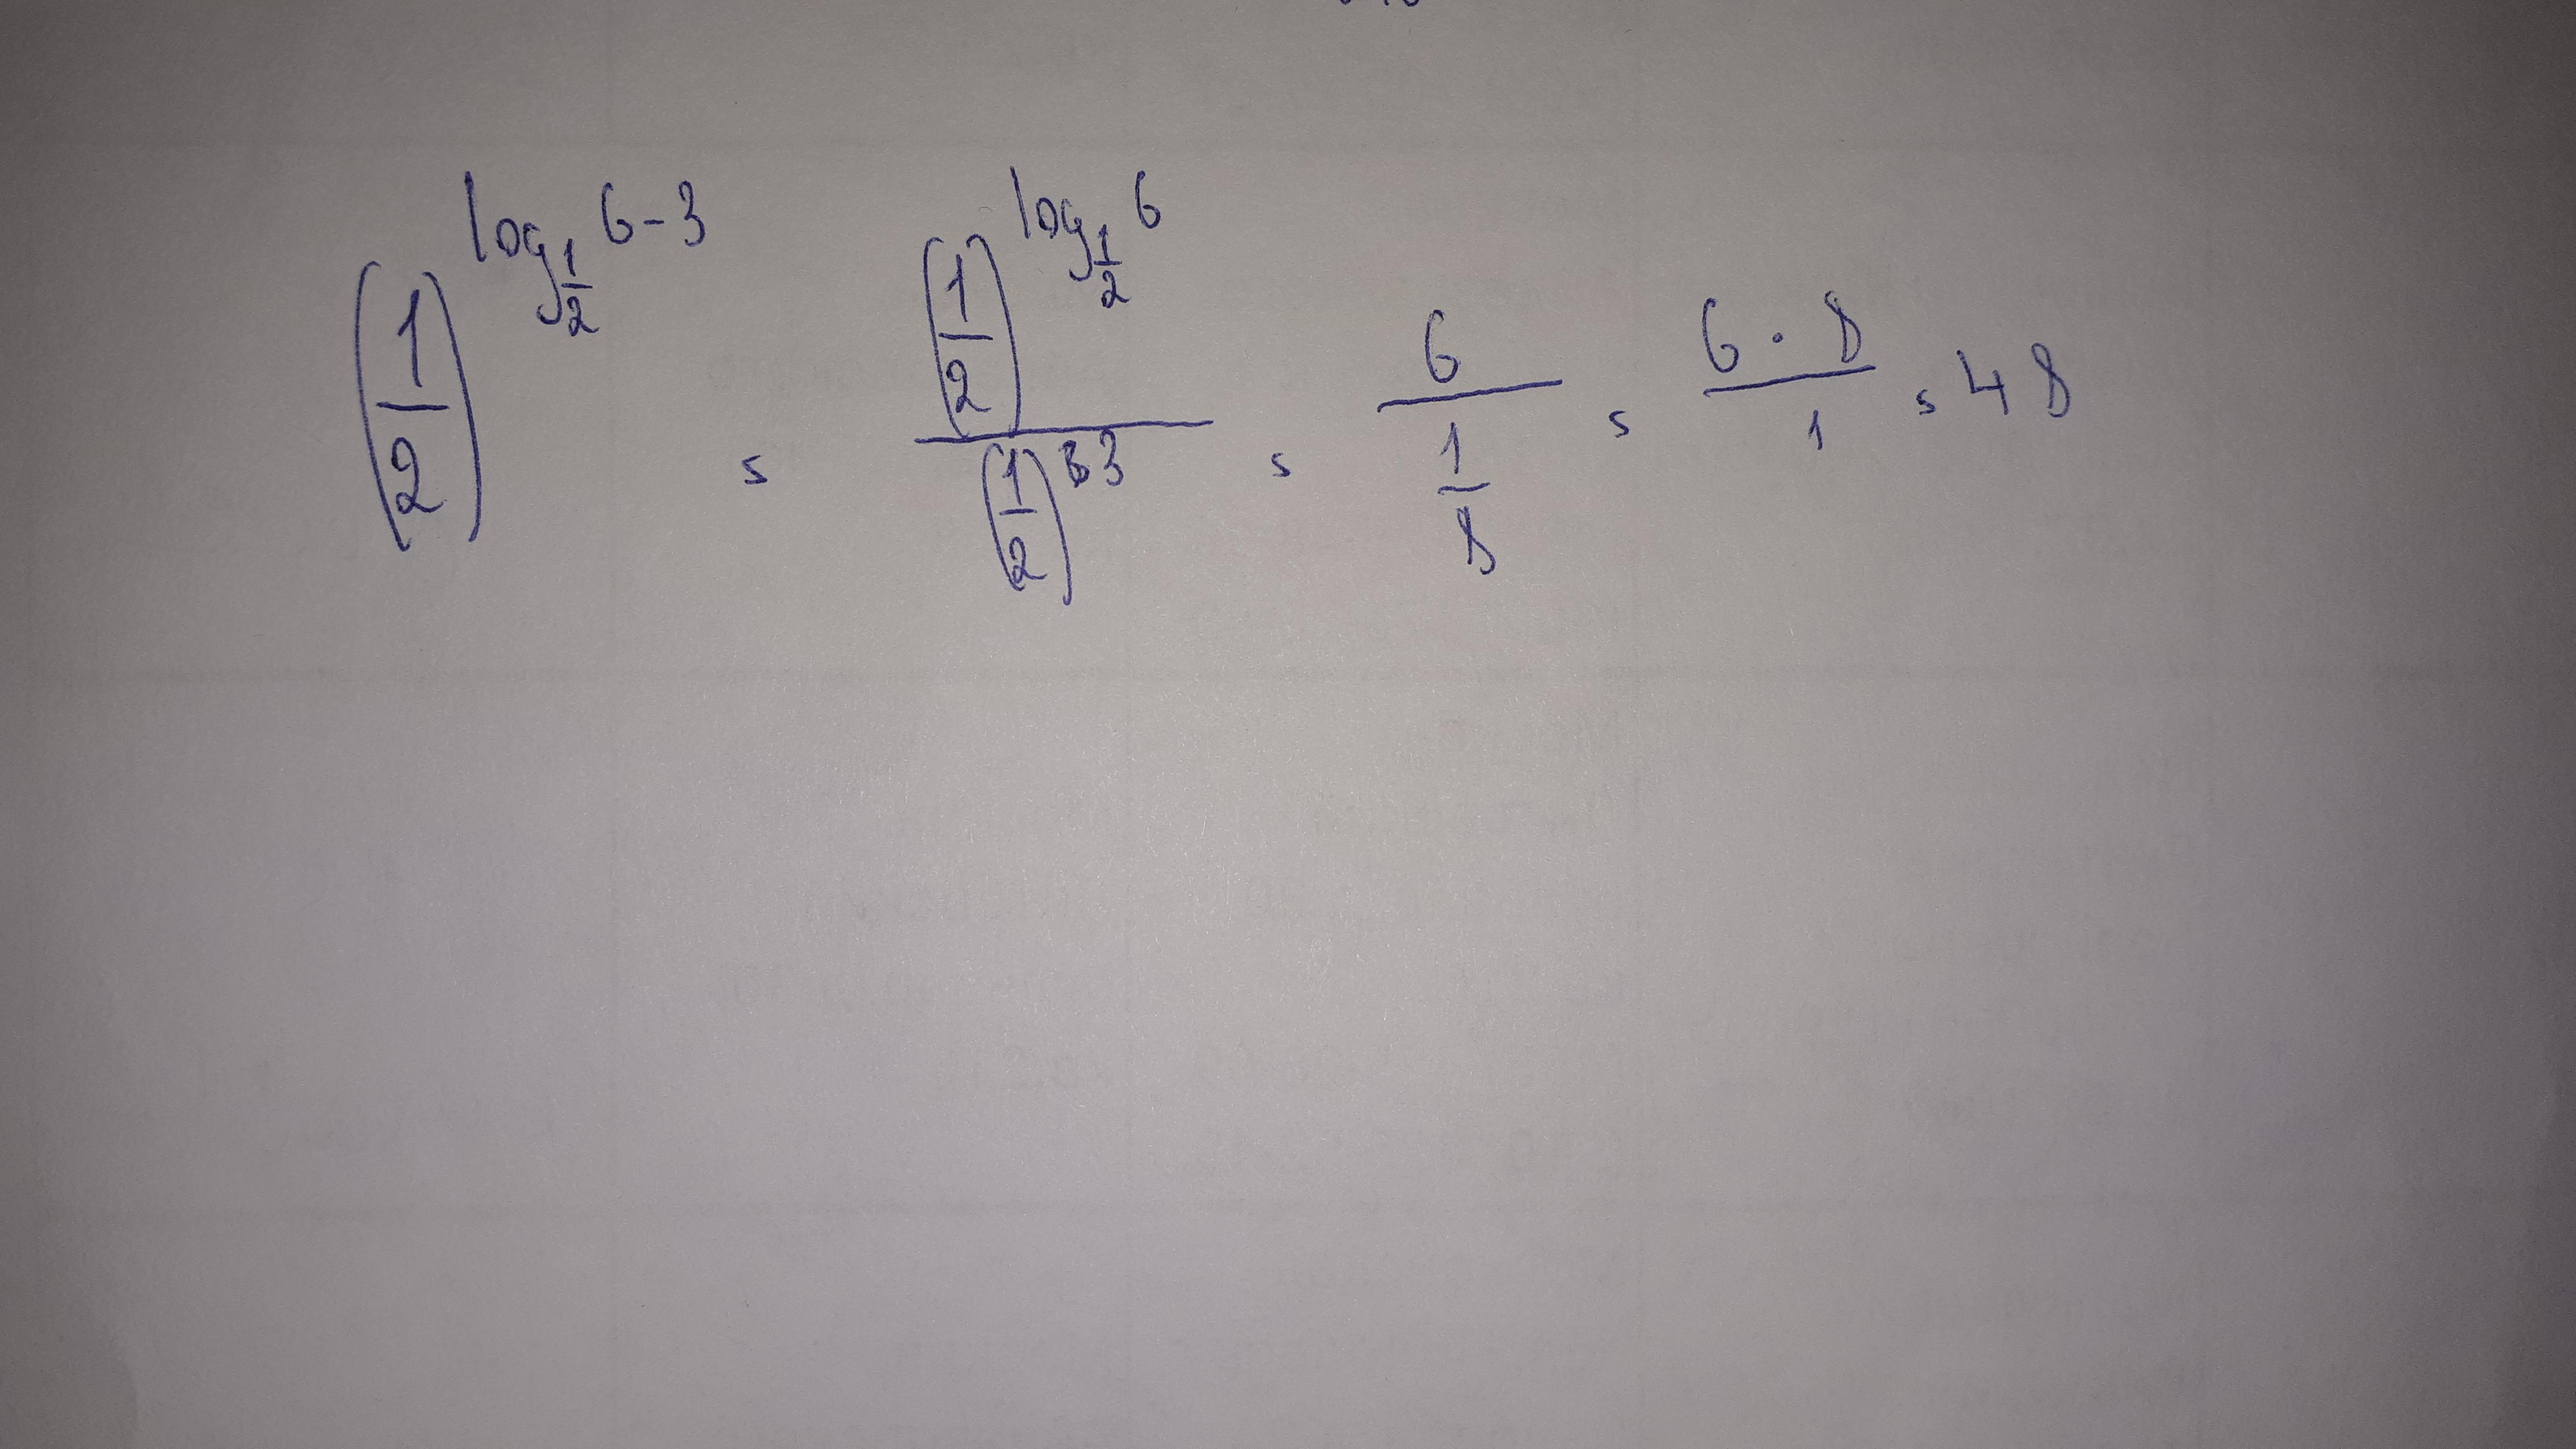 (1/2)^(log_(1/2) 6-3) = (1/2)^(log_(1/2) 6) / (1/2)^3 = 6 / (1/8) = 6·8 / 1 = 48